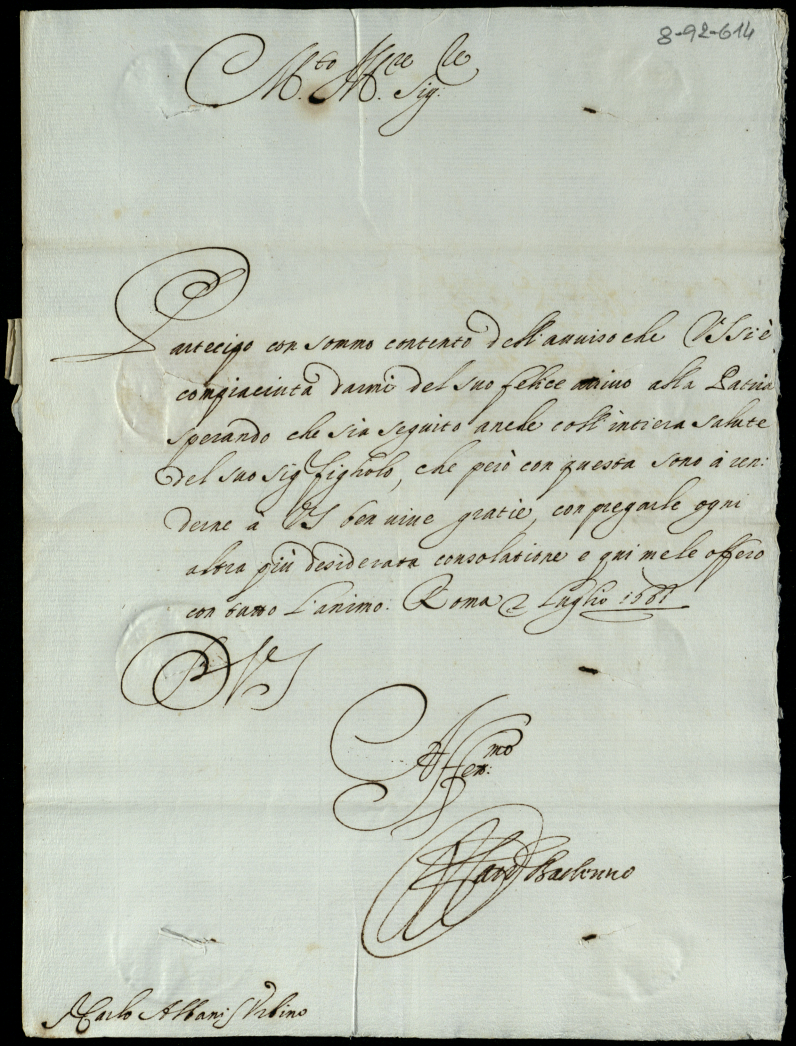 8-92-614
M.to Ill.re Sig.re
Partecipo con sommo contento dell'auuiso che VS si è
compiaciuta darmi del suo felice arriuo alla Patria
sperando che sia seguito anche coll'intiera salute
del suo Sig Figliolo, che però con questa sono à ren:
derne à VS ben uiue gratie, con pregarle ogni
altra più desiderata consolatione e qui me le offero
con tutto l'animo. Roma 2 Luglio
DVS
Aff.mo
Card Barberino
Carlo Albani Vrbino